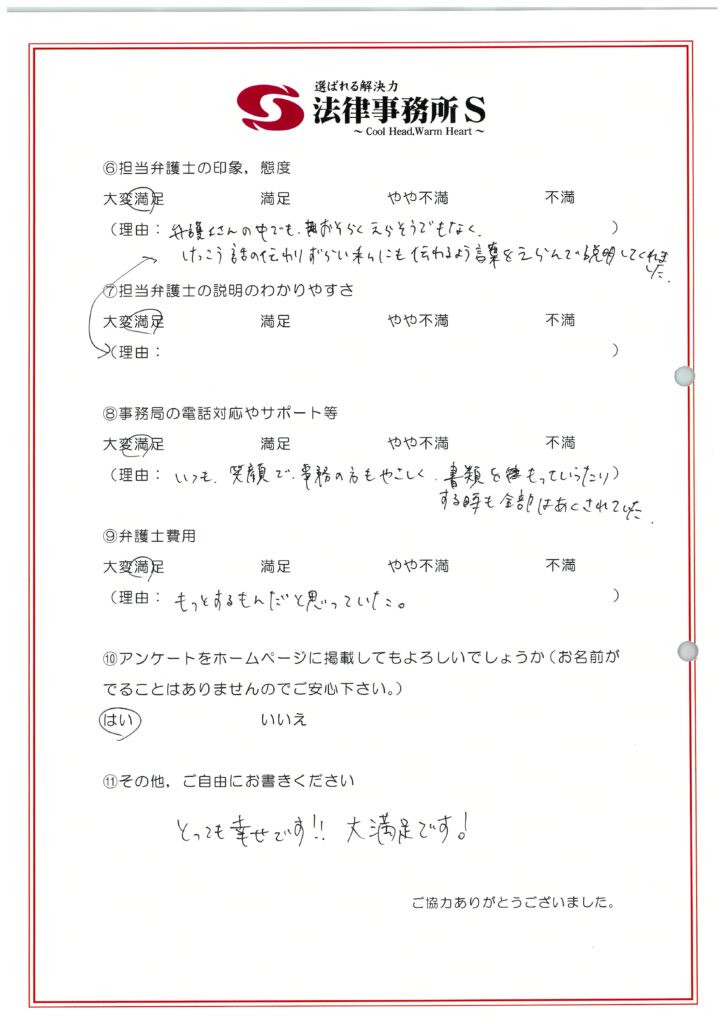 選ばれる解決力
法律事務所S
～Cool Head,Warm Heart～
⑥担当弁護士の印象，態度
大変満足 満足 やや不満 不満
（理由：弁護士さんの中でも、おそらくえらそうでもなく、）
けっこう話の伝わりずらい私にも伝わるよう言葉をえらんで説明してくれました。
⑦担当弁護士の説明のわかりやすさ
大変満足 満足 やや不満 不満
（理由： ）
⑧事務局の電話対応やサポート等
大変満足 満足 やや不満 不満
（理由：いつも、笑顔で、事務の方もやさしく、書類をもっていったり）
する時も全部はあくされていた。
⑨弁護士費用
大変満足 満足 やや不満 不満
（理由：もっとするもんだと思っていた。）
⑩アンケートをホームページに掲載してもよろしいでしょうか（お名前が
でることはありませんのでご安心下さい。）
はい いいえ
⑪その他，ご自由にお書きください
とっても幸せです!! 大満足です!
ご協力ありがとうございました。